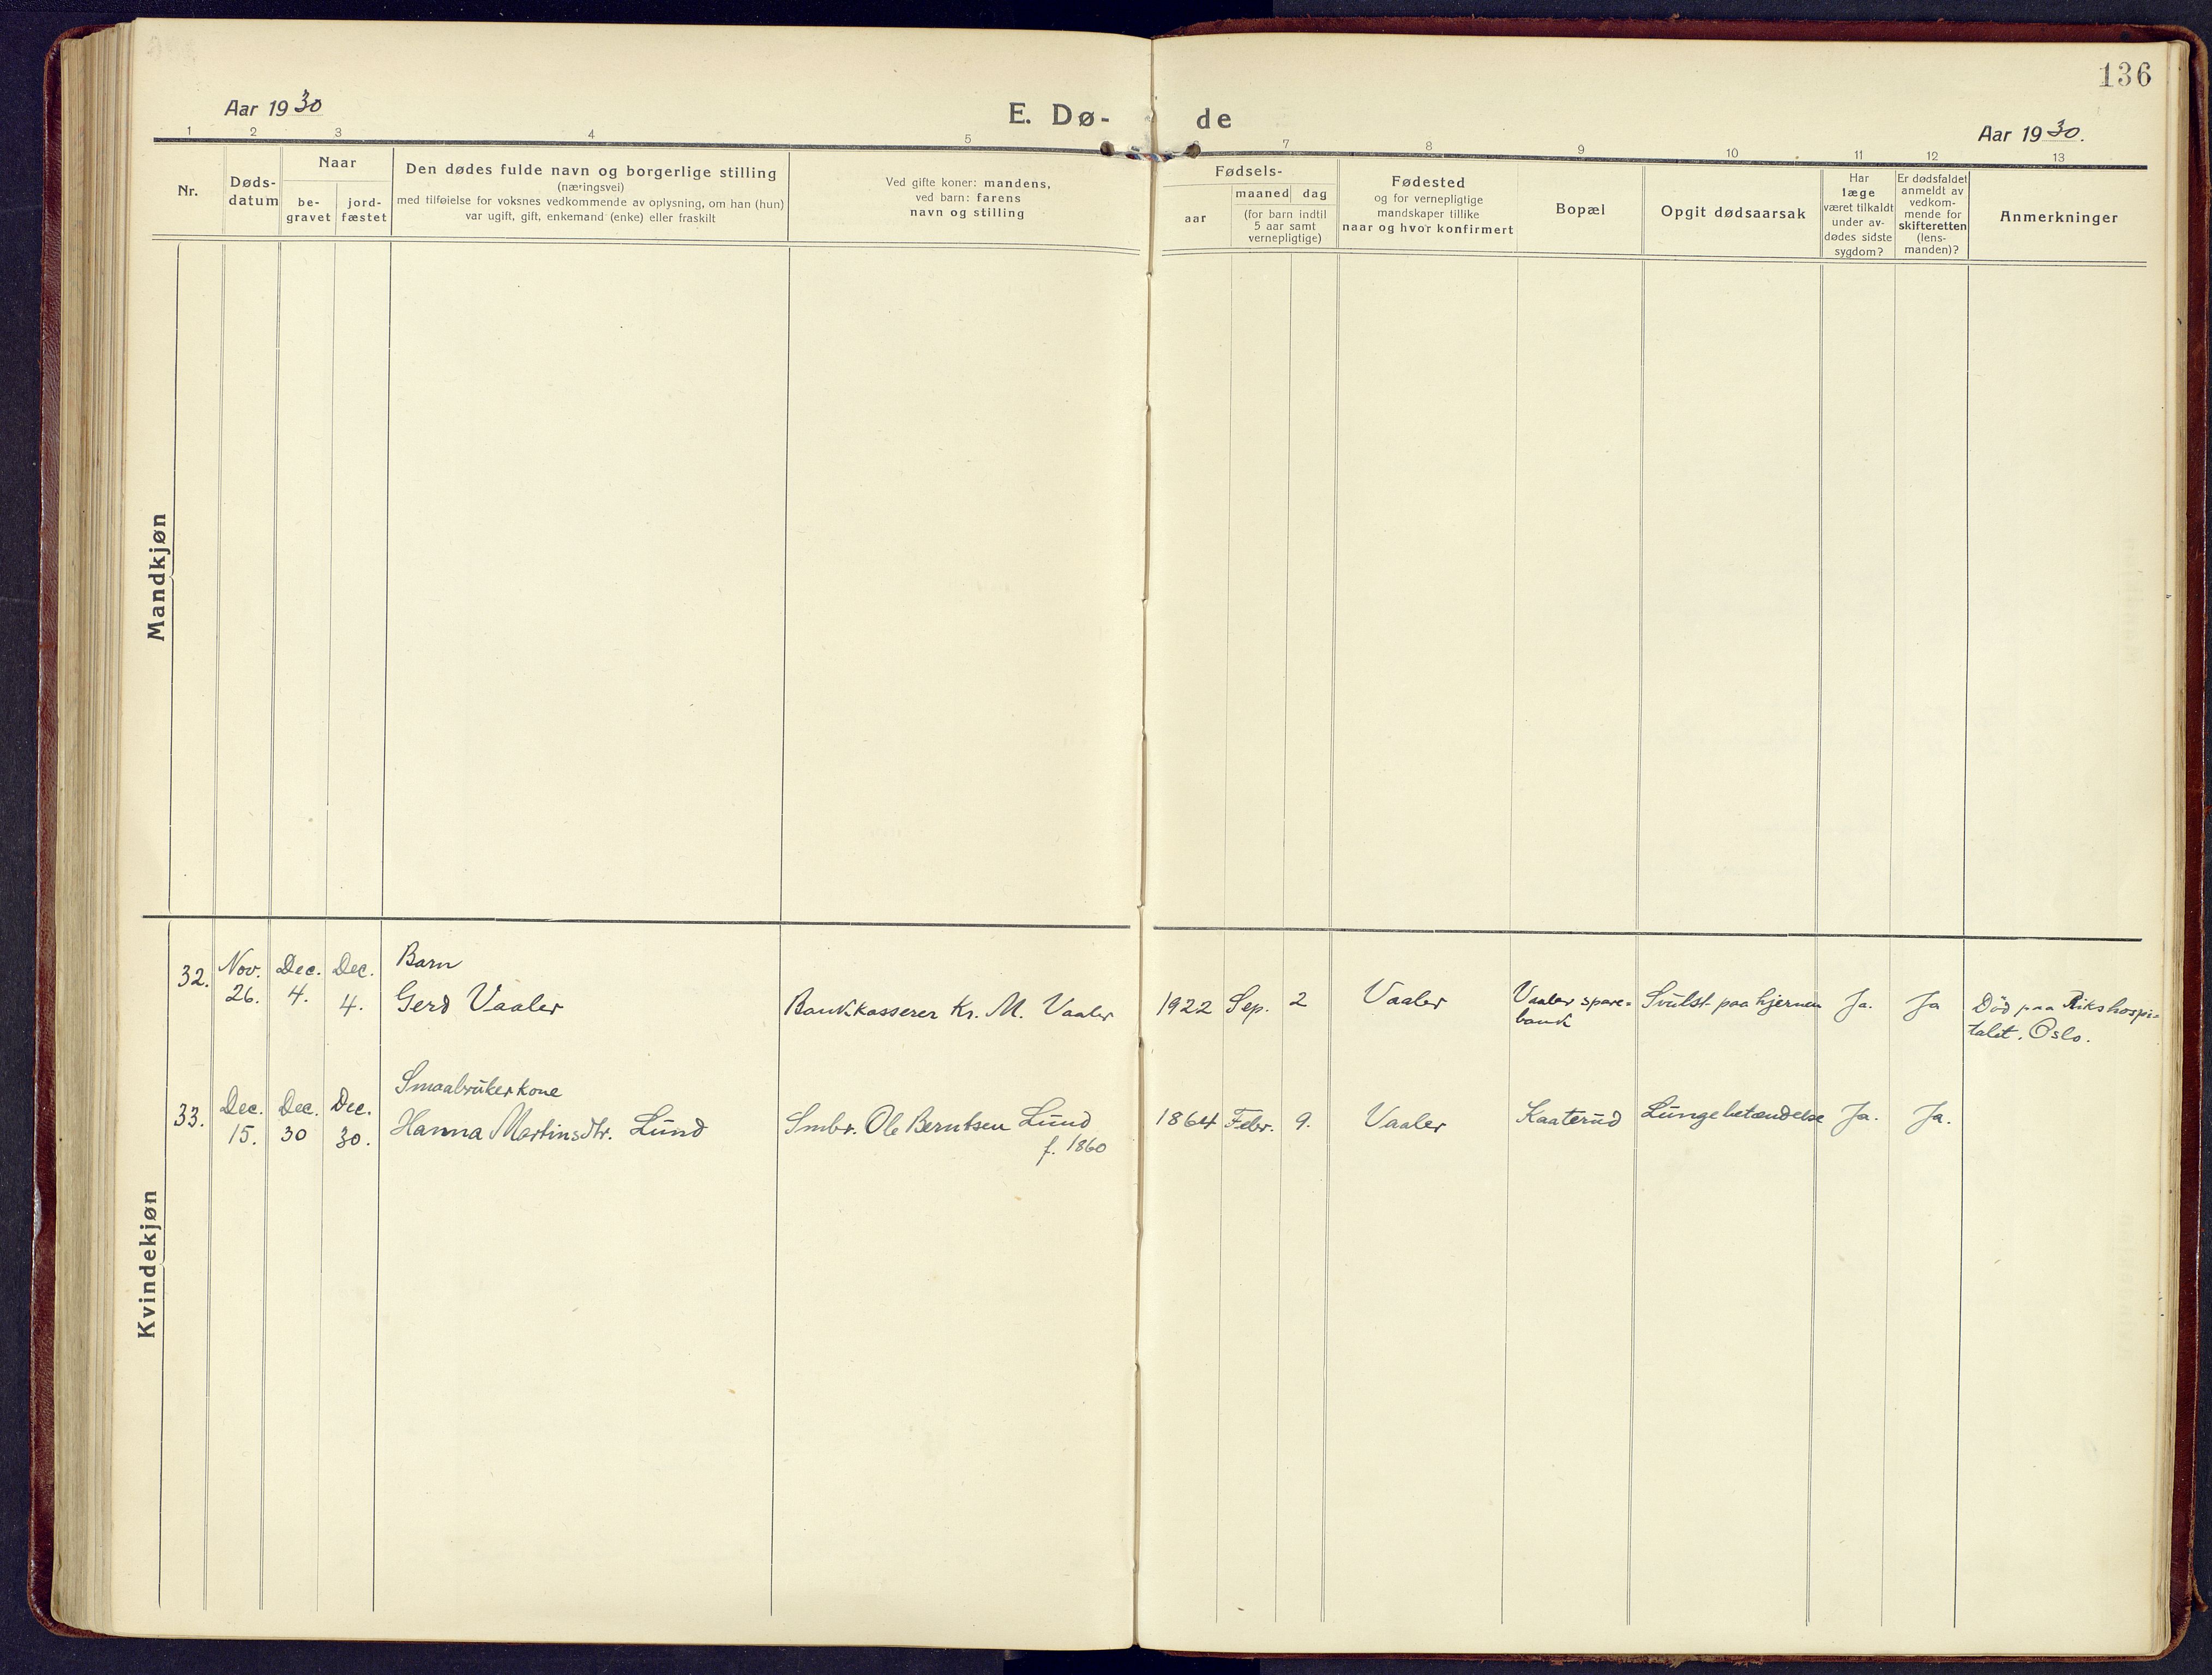 136
Aar 1930
E. Dø-
de
Aar 1930.
1 2 3 4 5 6 7 8 9 10 11 12 13
Nr.
Døds-
datum
Naar
be-
gravet
jord-
fæstet
Den dødes fulde navn og borgerlige stilling
(næringsvei)
med tilføielse for voksnes vedkommende av oplysning, om han (hun)
var ugift, gift, enkemand (enke) eller fraskilt
Ved gifte koner: mandens,
ved barn: farens
navn og stilling
Fødsels-
aar
maaned dag
(for barn indtil
5 aar samt
vernepligtige)
Fødested
og for vernepligtige
mandskaper tillike
naar og hvor konfirmert
Bopæl
Opgit dødsaarsak
Har
læge
været tilkaldt
under av-
dødes sidste
sygdom?
Er dødsfaldet
anmeldt av
vedkom-
mende for
skifteretten
(lens-
manden)?
Anmerkninger
Mandkjøn
Kvindekjøn
32. Nov. 26. Dec. 4. Dec. 4.
Barn
Gerd Vaaler
Bankkasserer Kr. M. Vaaler
1922 Sep. 2
Vaaler
Vaaler spare-
bank
Svulst paa hjernen
Ja.
Ja
Död paa Rikshospi-
talet. Oslo.
33. Dec. 15. Dec. 30 Dec. 30.
Smaabrukerkone
Hanna Martinsdtr. Lund
Smbr. Ole Berntsen Lund
f. 1860
1864 Febr. 9.
Vaaler
Kaaterud
Lungebetændelse
Ja.
Ja.